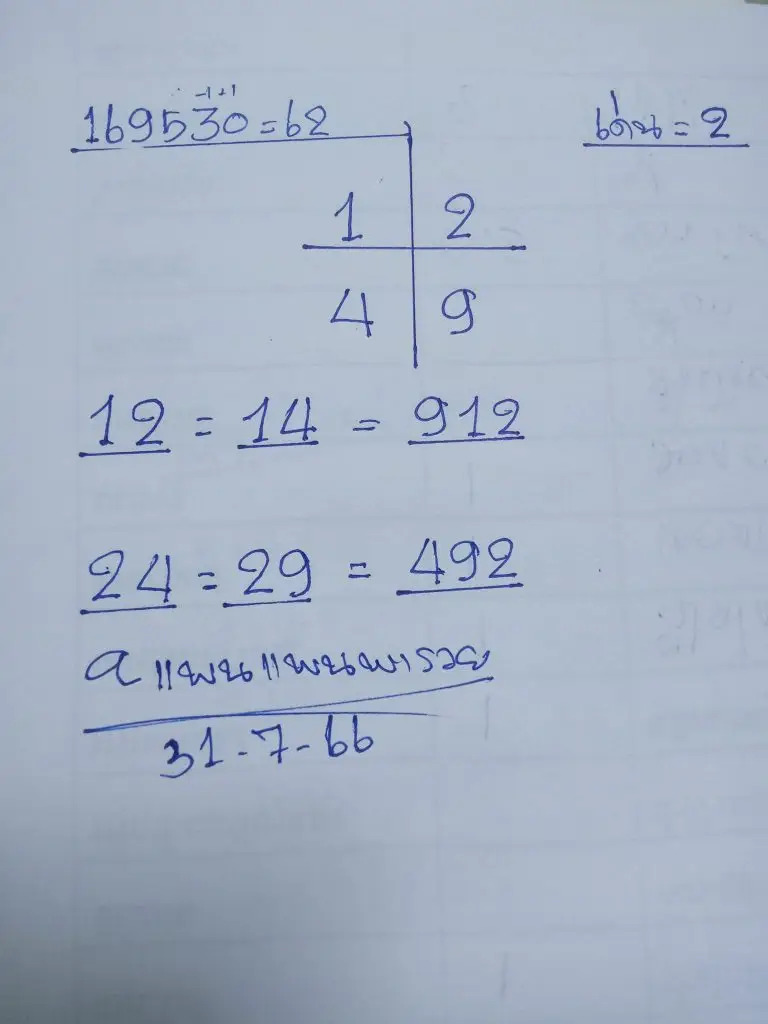 -1 +1
169530=62
เด่น = 2
1 2
4 9
12 = 14 = 912
24 = 29 = 492
a แพนแพนพารวย
31-7-66